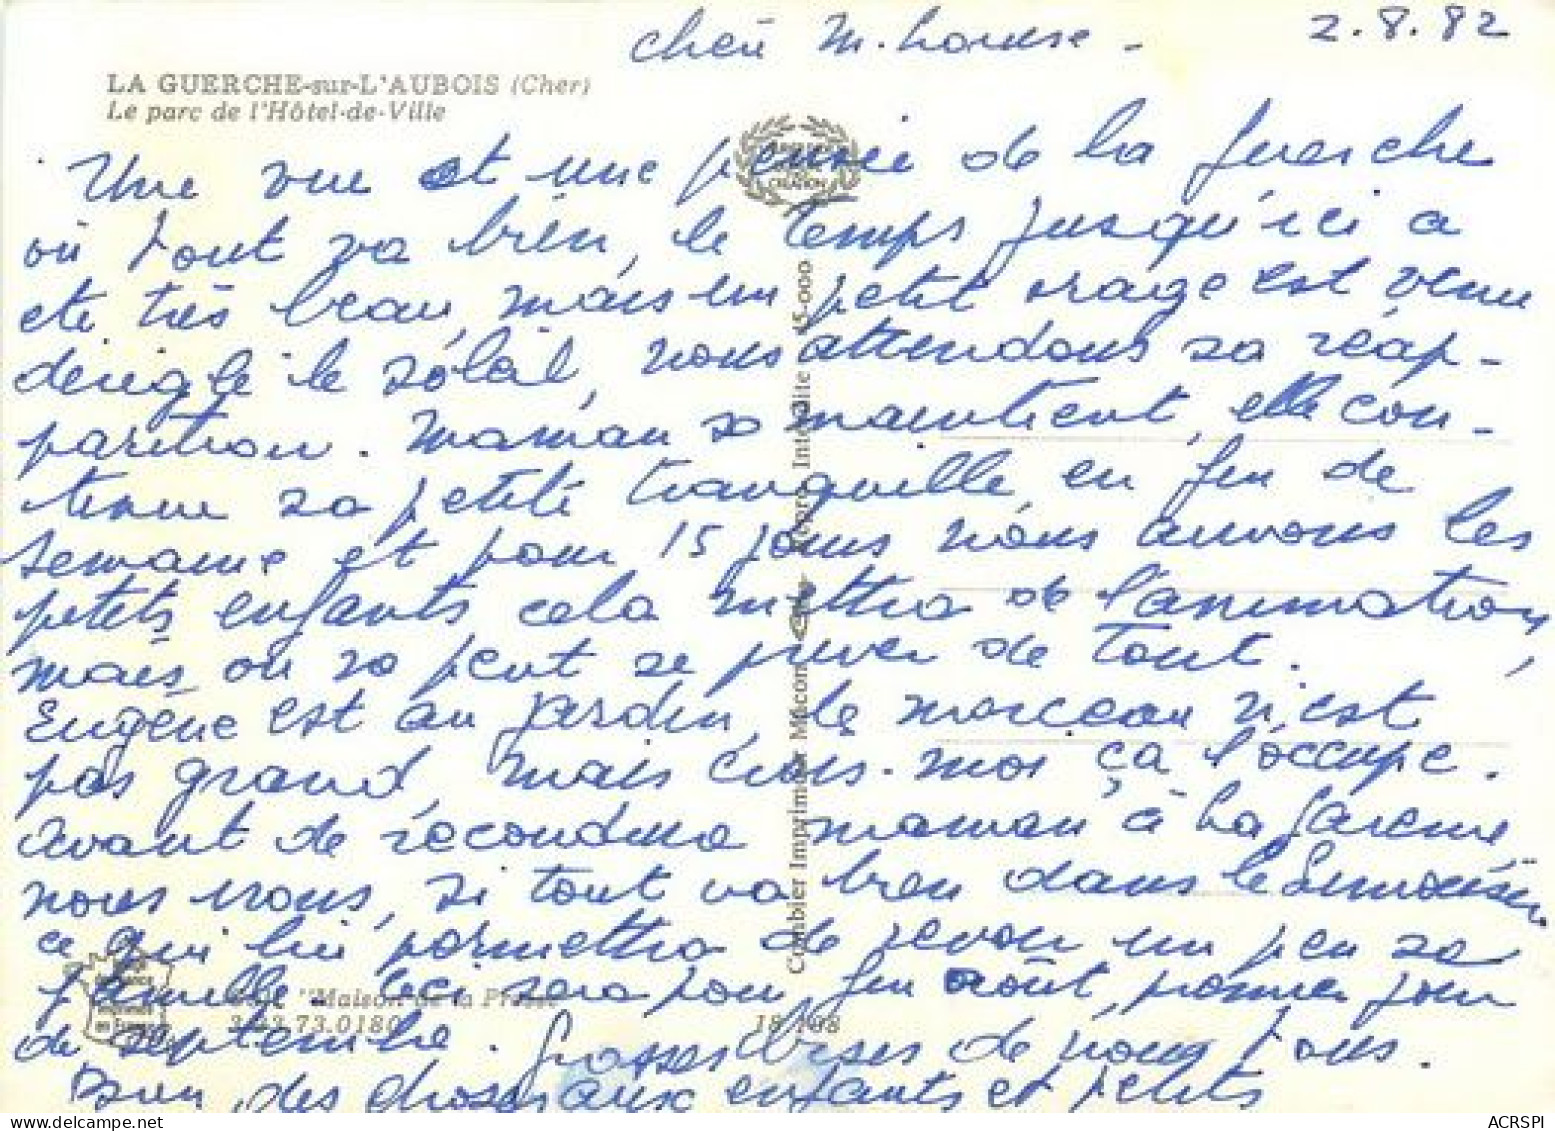 2.8.82
Chère M. Louise -
LA GUERCHE-sur-L'AUBOIS (Cher)
Le parc de l'Hôtel-de-Ville
Une vue et une pensée de La Guerche
où tout va bien, le temps jusqu'ici a
été très beau, mais un petit orage est venu
déréglé le soleil, nous attendons sa réap-
parition. Maman se maintient, elle con-
tinue sa petite tranquille, en fin de
semaine et pour 15 jours nous aurons les
petits enfants cela mettra de l'animation,
mais on ne peut se priver de tout.
Eugène est au jardin, le morceau n'est
pas grand, mais crois-moi ça l'occupe.
Avant de reconduire maman à La Garenne,
nous irons, si tout va bien dans le Limousin
ce qui lui permettra de revoir un peu sa
famille. Ceci sera pour fin août, premier jour
de septembre. Grosses bises de nous tous.
Bien des choses aux enfants et petits
"Maison de la Presse"
3.03.73.0180
18 108
Combier Imprimeur Mâcon
Repro. Interdite 45-000
ACRSPI